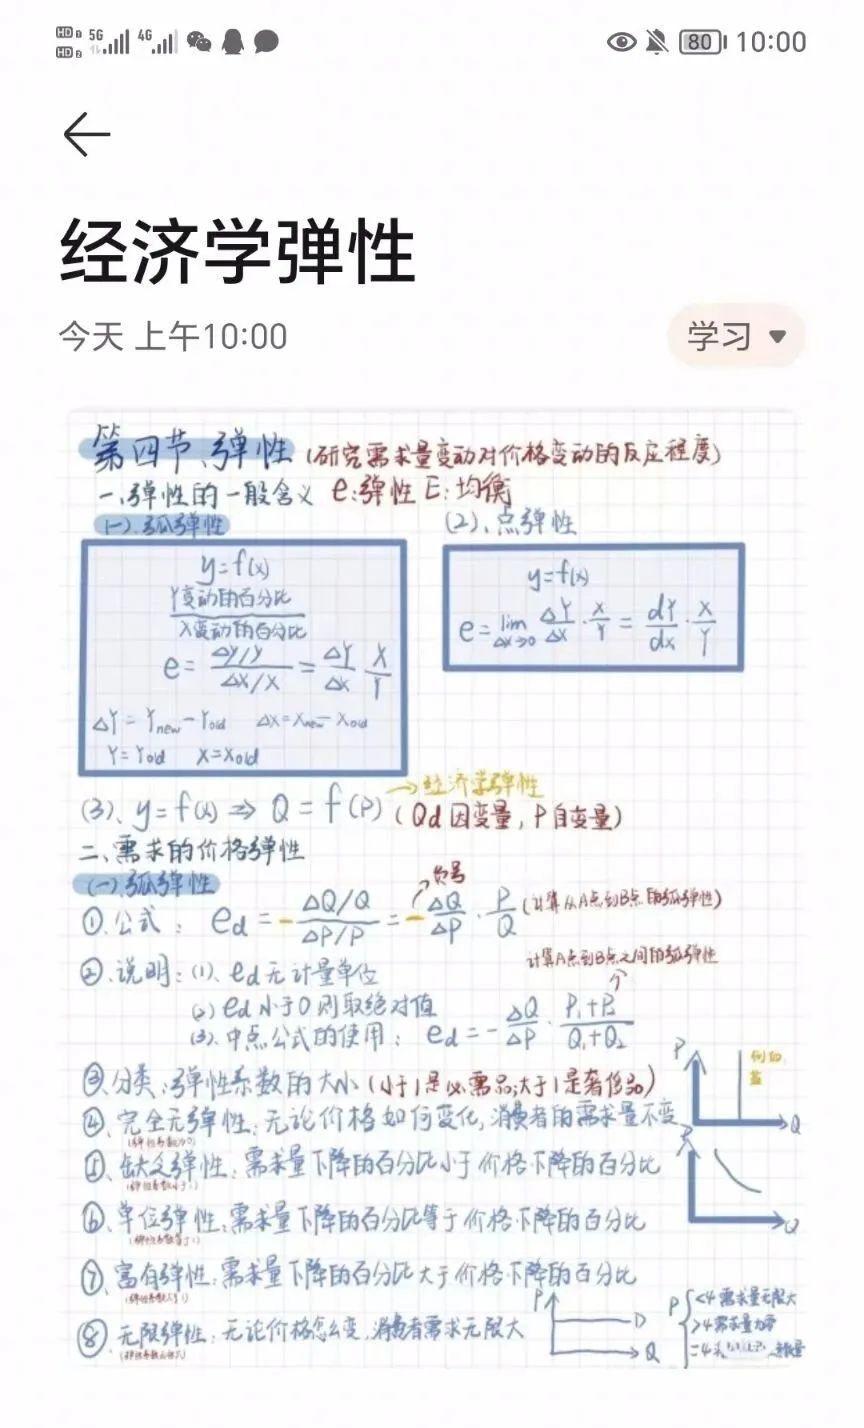 HD 1 5G 4G 80 10:00
HD 2
经济学弹性
今天 上午10:00
学习
第四节、弹性（研究需求量变动对价格变动的反应程度）
一、弹性的一般含义 e:弹性 E:均衡
(一).弧弹性
y=f(x)
Y变动的百分比
X变动的百分比
e= ΔY/Y / ΔX/X = ΔY/ΔX · X/Y
ΔY=Ynew-Yold ΔX=Xnew-Xold
Y=Yold X=Xold
(2)、点弹性
y=f(x)
e=lim Δx→0 ΔY/ΔX · X/Y = dY/dx · X/Y
→经济学弹性
(3)、y=f(x) => Q=f(P)（Qd因变量，P自变量）
二、需求的价格弹性
(一).弧弹性
负号
①.公式：ed=- ΔQ/Q / ΔP/P =- ΔQ/ΔP · P/Q（计算从A点到B点的弧弹性）
计算A点到B点之间的弧弹性
②.说明：(1)、ed无计量单位
(2) ed小于0则取绝对值
(3).中点公式的使用：ed=- ΔQ/ΔP · P1+P2 / Q1+Q2
③.分类：弹性系数的大小（小于1是必需品;大于1是奢侈品）
P Q
例如
盐
④、完全无弹性：无论价格如何变化，消费者的需求量不变
⑤、缺乏弹性：需求量下降的百分比小于价格下降的百分比
Q
⑥、单位弹性：需求量下降的百分比等于价格下降的百分比
⑦、富有弹性：需求量下降的百分比大于价格下降的百分比
⑧、无限弹性：无论价格怎么变，消费者需求无限大
P D Q
P <4需求量无限大
>4需求量为零
=4